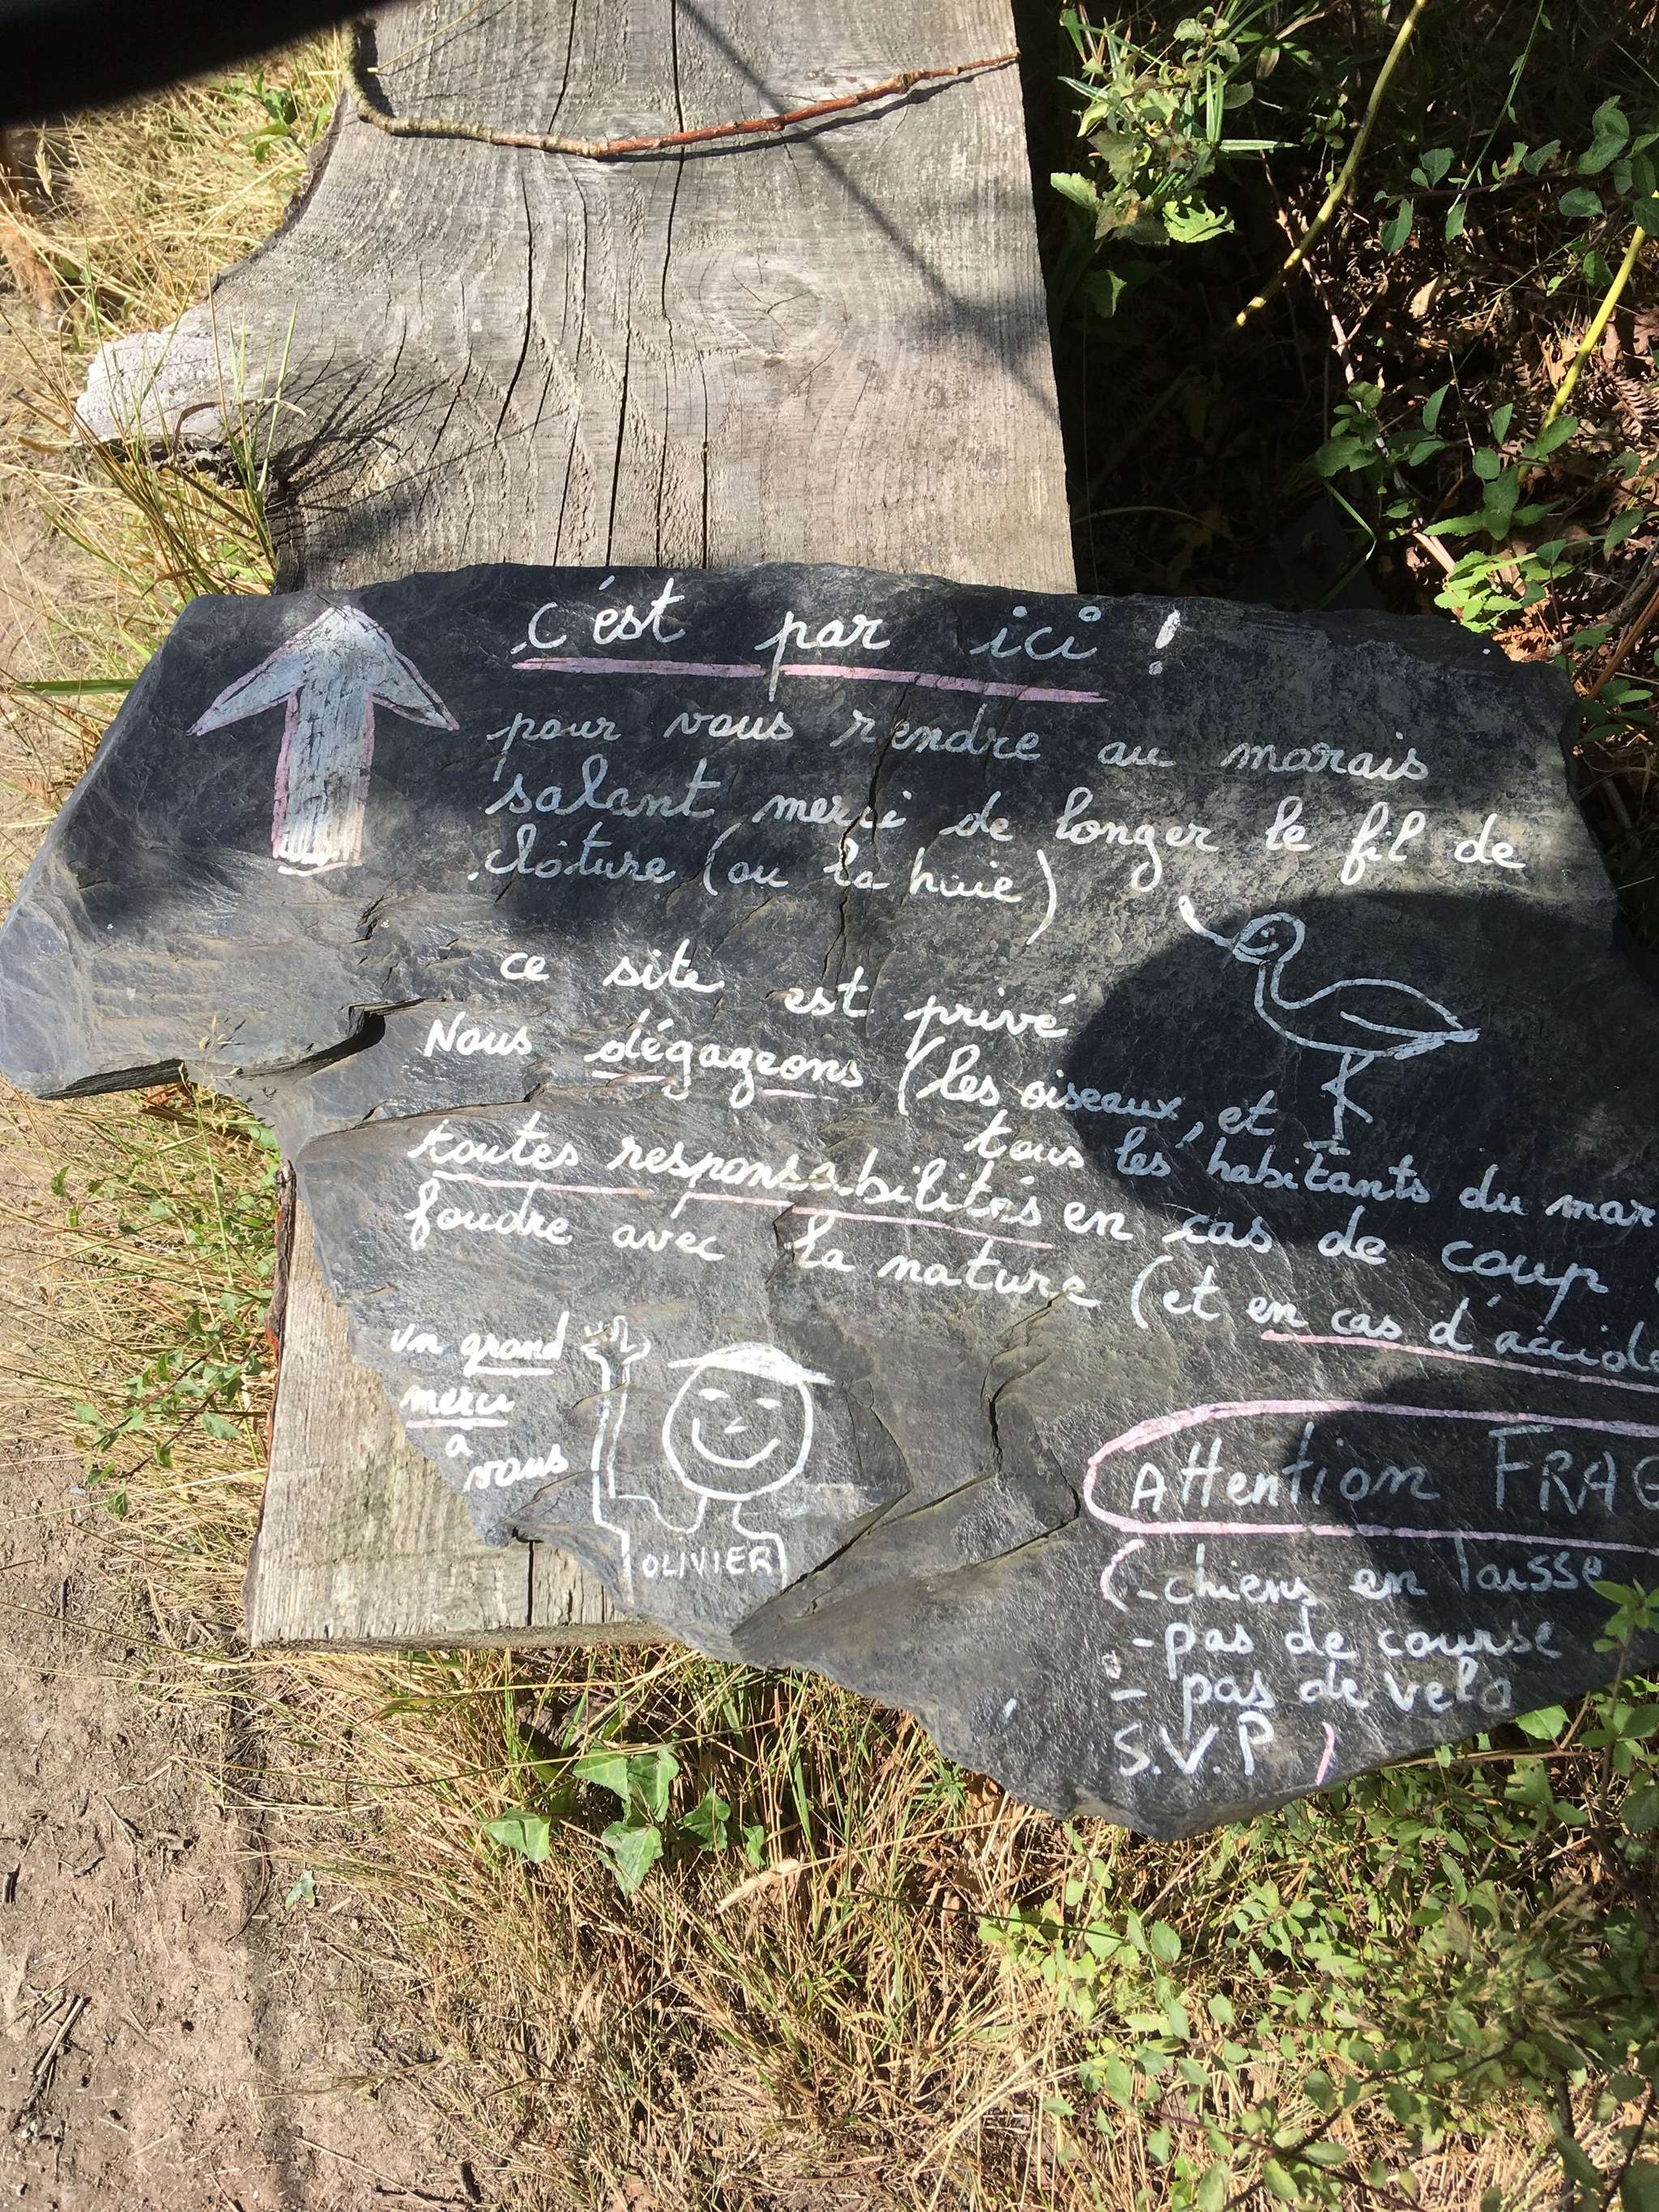 c'est par ici !
pour vous rendre au marais
salant merci de longer le fil de
clôture (ou la haie)
ce site est privé
Nous dégageons (les oiseaux, et
tous les habitants du mar
toutes responsabilités en cas de coup
foudre avec la nature (et en cas d'accide
un grand
merci
à
vous
OLIVIER
Attention FRAG
(-chiens en laisse
-pas de course
- pas de velo
S.V.P )